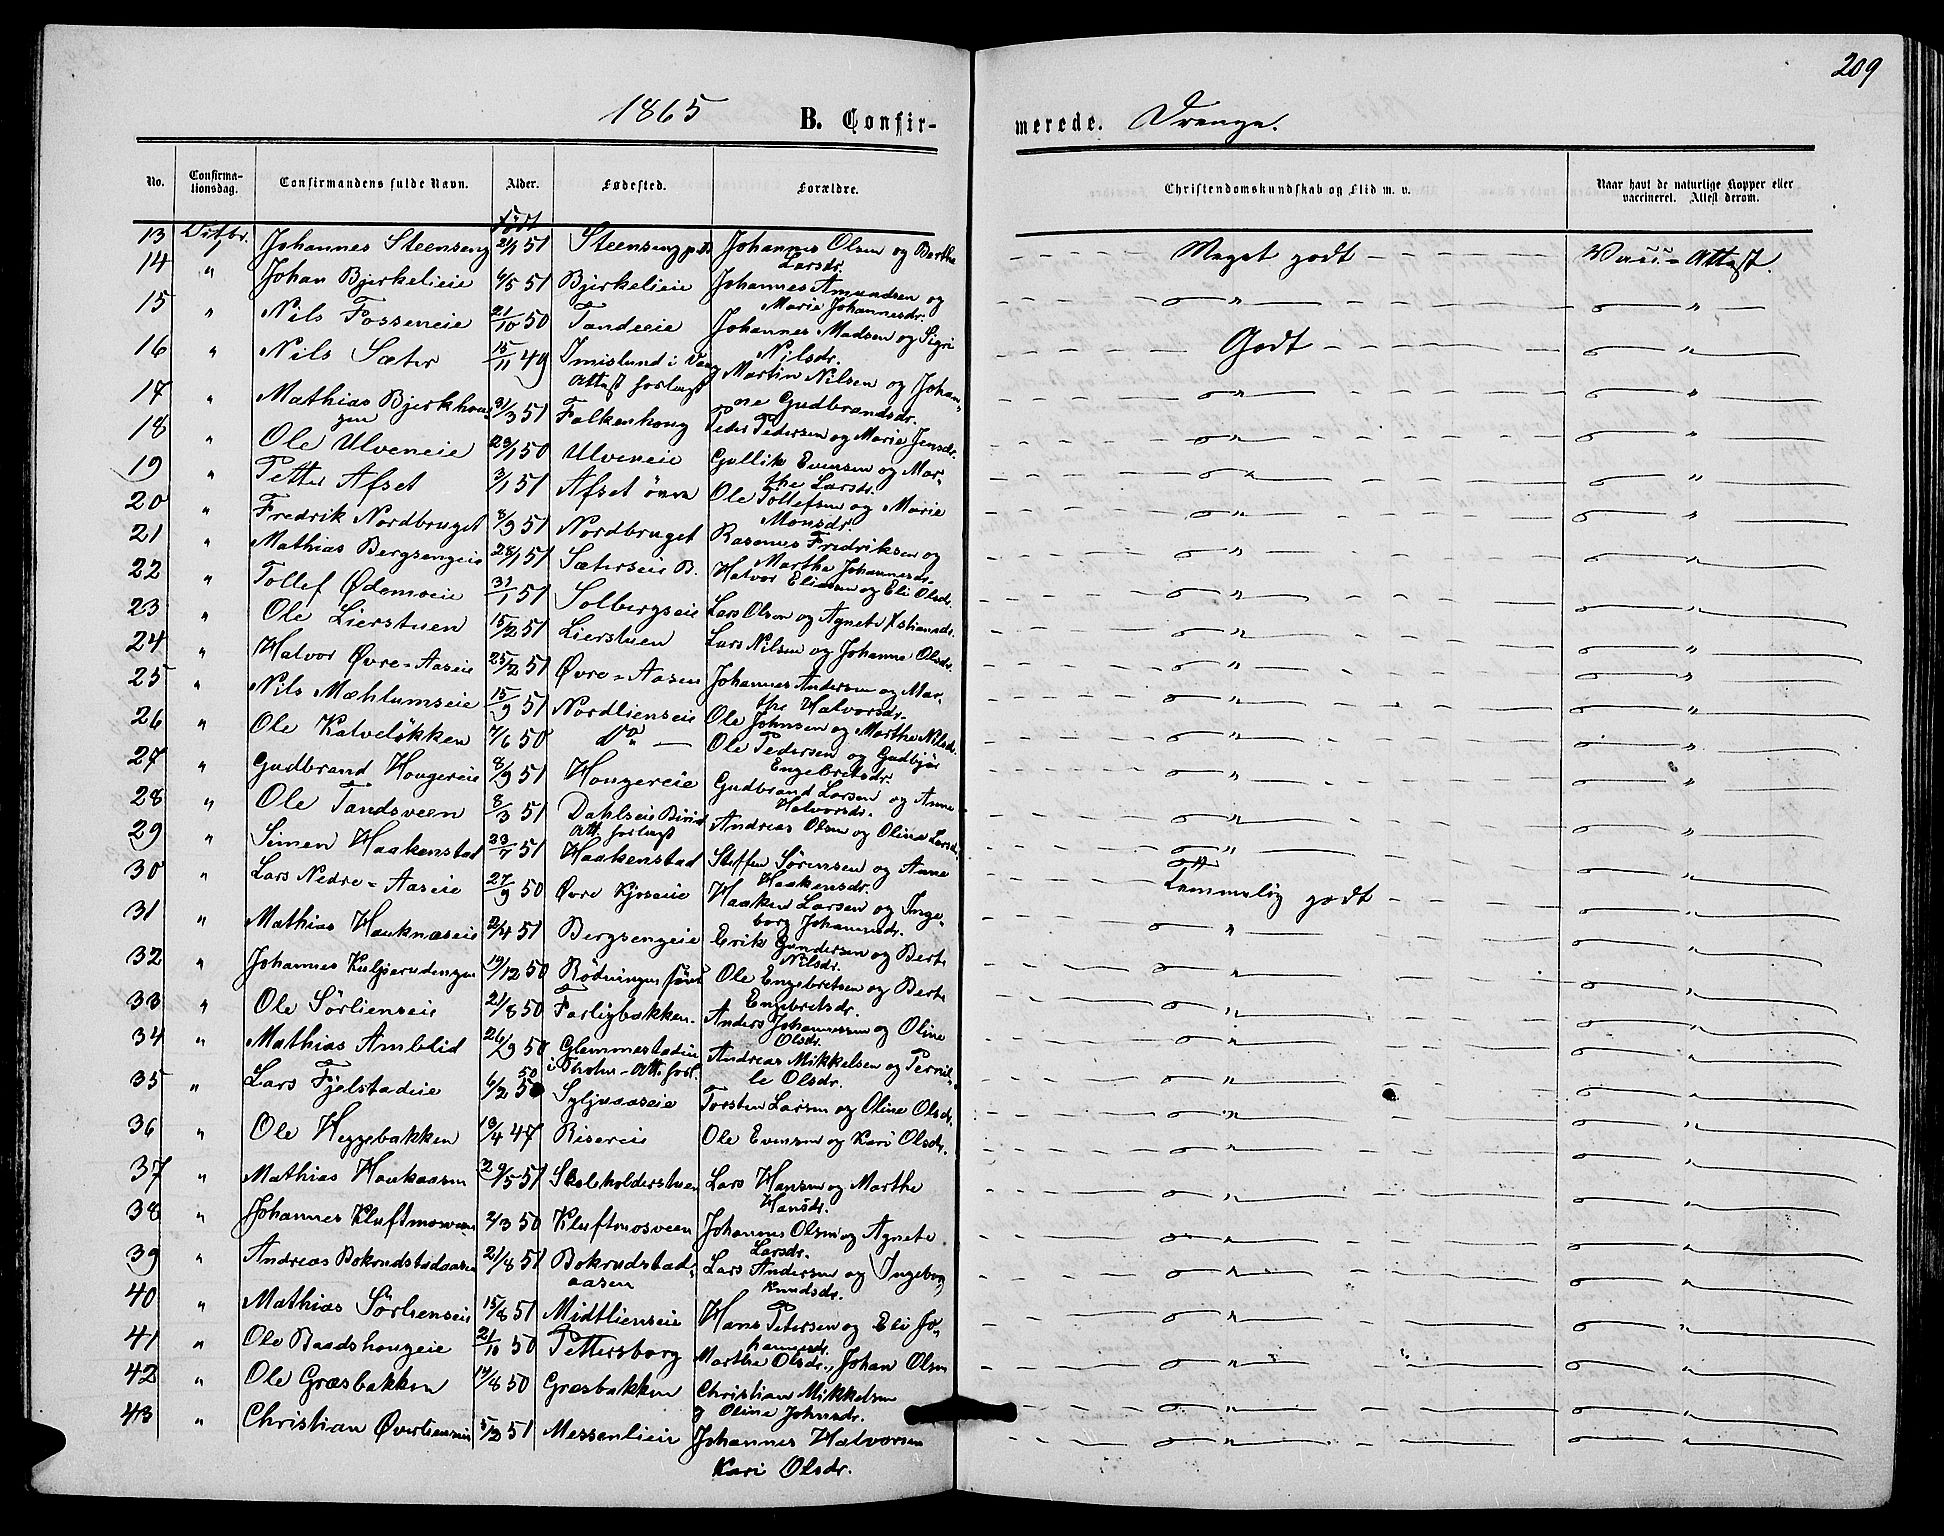 209
1865 B. Confir- merede. Drenge.
No. Confirma-tionsdag. Confirmandens fulde Navn. Alder. Fødested. Forældre. Christendomskundskab og Flid m. v. Naar havt de naturlige Kopper eller vaccineret. Attest derom.
født
13 Johannes Steenseng 51 Steenseng Johannes Olsen og Berthe Larsdr. Meget godt Attest.
14 " Johan Bjerkelieie 6/5 51 Bjerkelieie Johannes Amundsen og Marie Johannesdr. " "
15 " Nils Fosseneie 21/10 50 Johannes Madsen og Sigri Nilsdr. Godt "
16 " Nils Sæter 15/11 49 Imislund i Vang Attest forlangt Martin Nilsen og Johanne Gudbrandsdr. " "
17 " Mathias 3/3 51 Falkenhoug Peder Pedersen og Marie Jensdr. " "
18 " Ole Ulveneie 50 Ulveneie Gullik Evensen og Marthe Larsdr. " "
19 " Petter Afset 3/1 51 Afset Ole Tollefsen og Marie Monsdr. " "
20 " Fredrik Nordbruget 8/9 51 Nordbruget Rasmus Fredriksen og Marthe Johannesdr. " "
21 " Mathias Bergsengeie 28/1 51 Sæterseie B. Halvor Eliasen og Eli Olsdr. " "
22 " Tollef Ødemoeie 31/1 51 Solbergseie Lars Olsen og Agnete " "
23 " Ole Lierstuen 15/2 51 Lierstuen Lars Nilsen og Johanne Olsdr. " "
24 " Halvor Øvre-Aaseie 25/2 51 Øvre-Aasen Johannes Andersen og Marthe Halvorsdr. " "
25 " Nils Mæhlumseie 15/9 51 Nordlienseie Ole Johnsen og Marthe Nilsdr. " "
26 " Ole Kalveløkken 7/6 50 Do. — Ole Pedersen og Gudbjør Engebretsdr. " "
27 " Gudbrand Hougereie 8/9 51 Hougereie Gudbrand Larsen og Anne Halvorsdr. " "
28 " Ole Tandsveen 8/3 51 Dahlseie Biri Att. forlangt Andreas Olsen og Oline Larsdr. " "
29 " Simen Haakenstad 23/7 51 Haakenstad Steffen Sørensen og Anne Haakensdr. " "
30 " Lars Nedre-Aaseie 27/9 50 Øvre Kjoseie Haaken Larsen og Ingeborg Johannesdr. Temmelig godt "
31 " Mathias Hauknæseie 2/4 51 Bergsengeie Erik Gundersen og Berte Nilsdr. " "
32 " Johannes 19/12 50 Rødningen Ole Engebretsen og Berte Engebretsdr. " "
33 " Ole Sørlienseie 21/8 50 Farligbakken Anders Johannessen og Oline Olsdr. " "
34 " Mathias Amblid 26/9 50 Glemmestadeie Att. forl. Andreas Mikkelsen og Pernille Olsdr. " "
35 " Lars Fjelstadeie 6/2 50 Syljuaaseie Torsten Larsen og Oline Olsdr. " "
36 " Ole Heggebakken 19/4 47 Risereie Ole Evensen og Kari Olsdr. " "
37 " Mathias Haukaasen 29/5 51 Skoleholderstuen Lars Hansen og Marthe Hansdr. " "
38 " Johannes Kluftmosveen 2/3 50 Kluftmosveen Johannes Olsen og Agnete Larsdr. " "
39 " Andreas Bokrudstadaasen 21/8 51 Bokrudstadaasen Lars Andersen og Ingeborg Knudsdr. " "
40 " Mathias Sørlienseie 15/8 51 Midtlienseie Hans Petersen og Eli Johannesdr. " "
41 " Ole Baadshougeie 2/10 50 Pettersborg Marthe Olsdr., Johan Olsen " "
42 " Ole Græsbakken 14/8 50 Græsbakken Christian Mikkelsen og Oline Johnsdr. " "
43 " Christian Øverlienseie 5/2 51 Messenlieie Johannes Halvorsen Kari Olsdr. " "